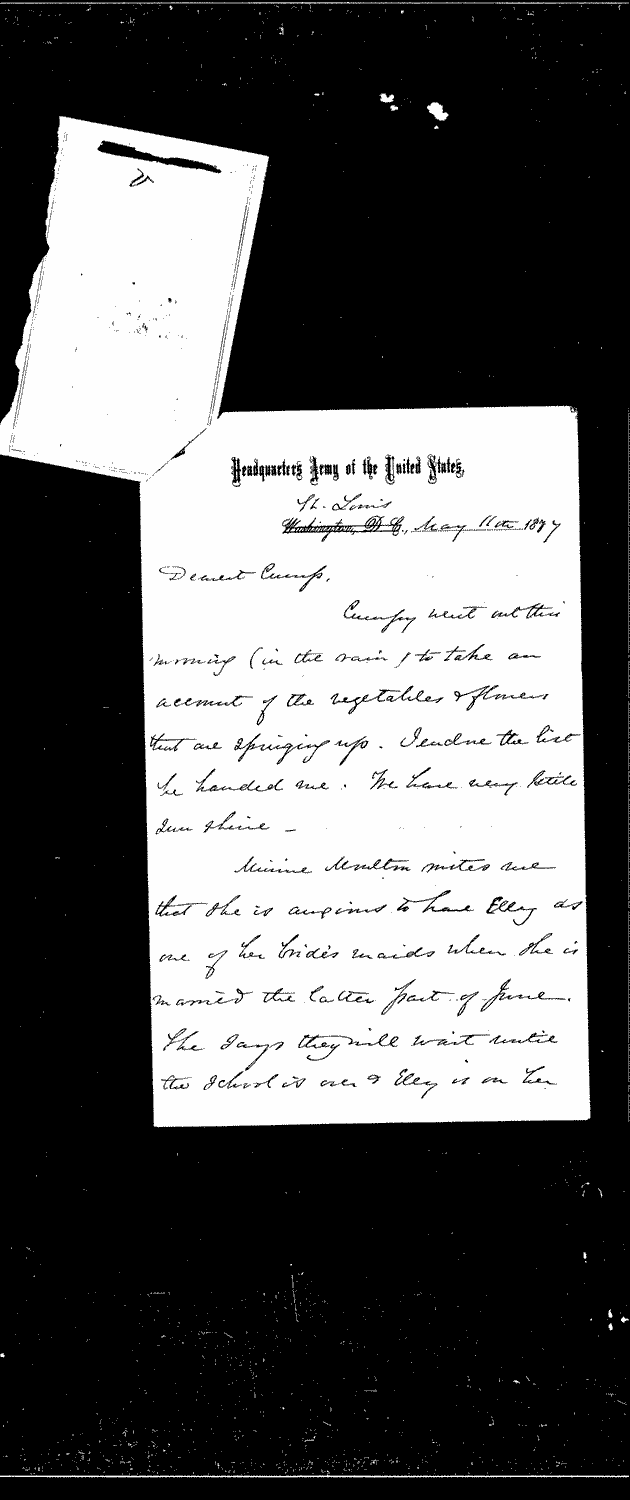 Headquarters Army of the United States,
St. Louis
Washington, D.C., May 11th 1877
Dearest Cump,
Cumpy went out this
morning (in the rain) to take an
account of the vegetables & flowers
that are springing up. I enclose the list
he handed me. We have very little
sun shine —
Minnie Moulton writes me
that she is anxious to have Elly as
one of her brides maids when she is
married the latter part of June.
She says they will wait until
the school is over & Elly is on her